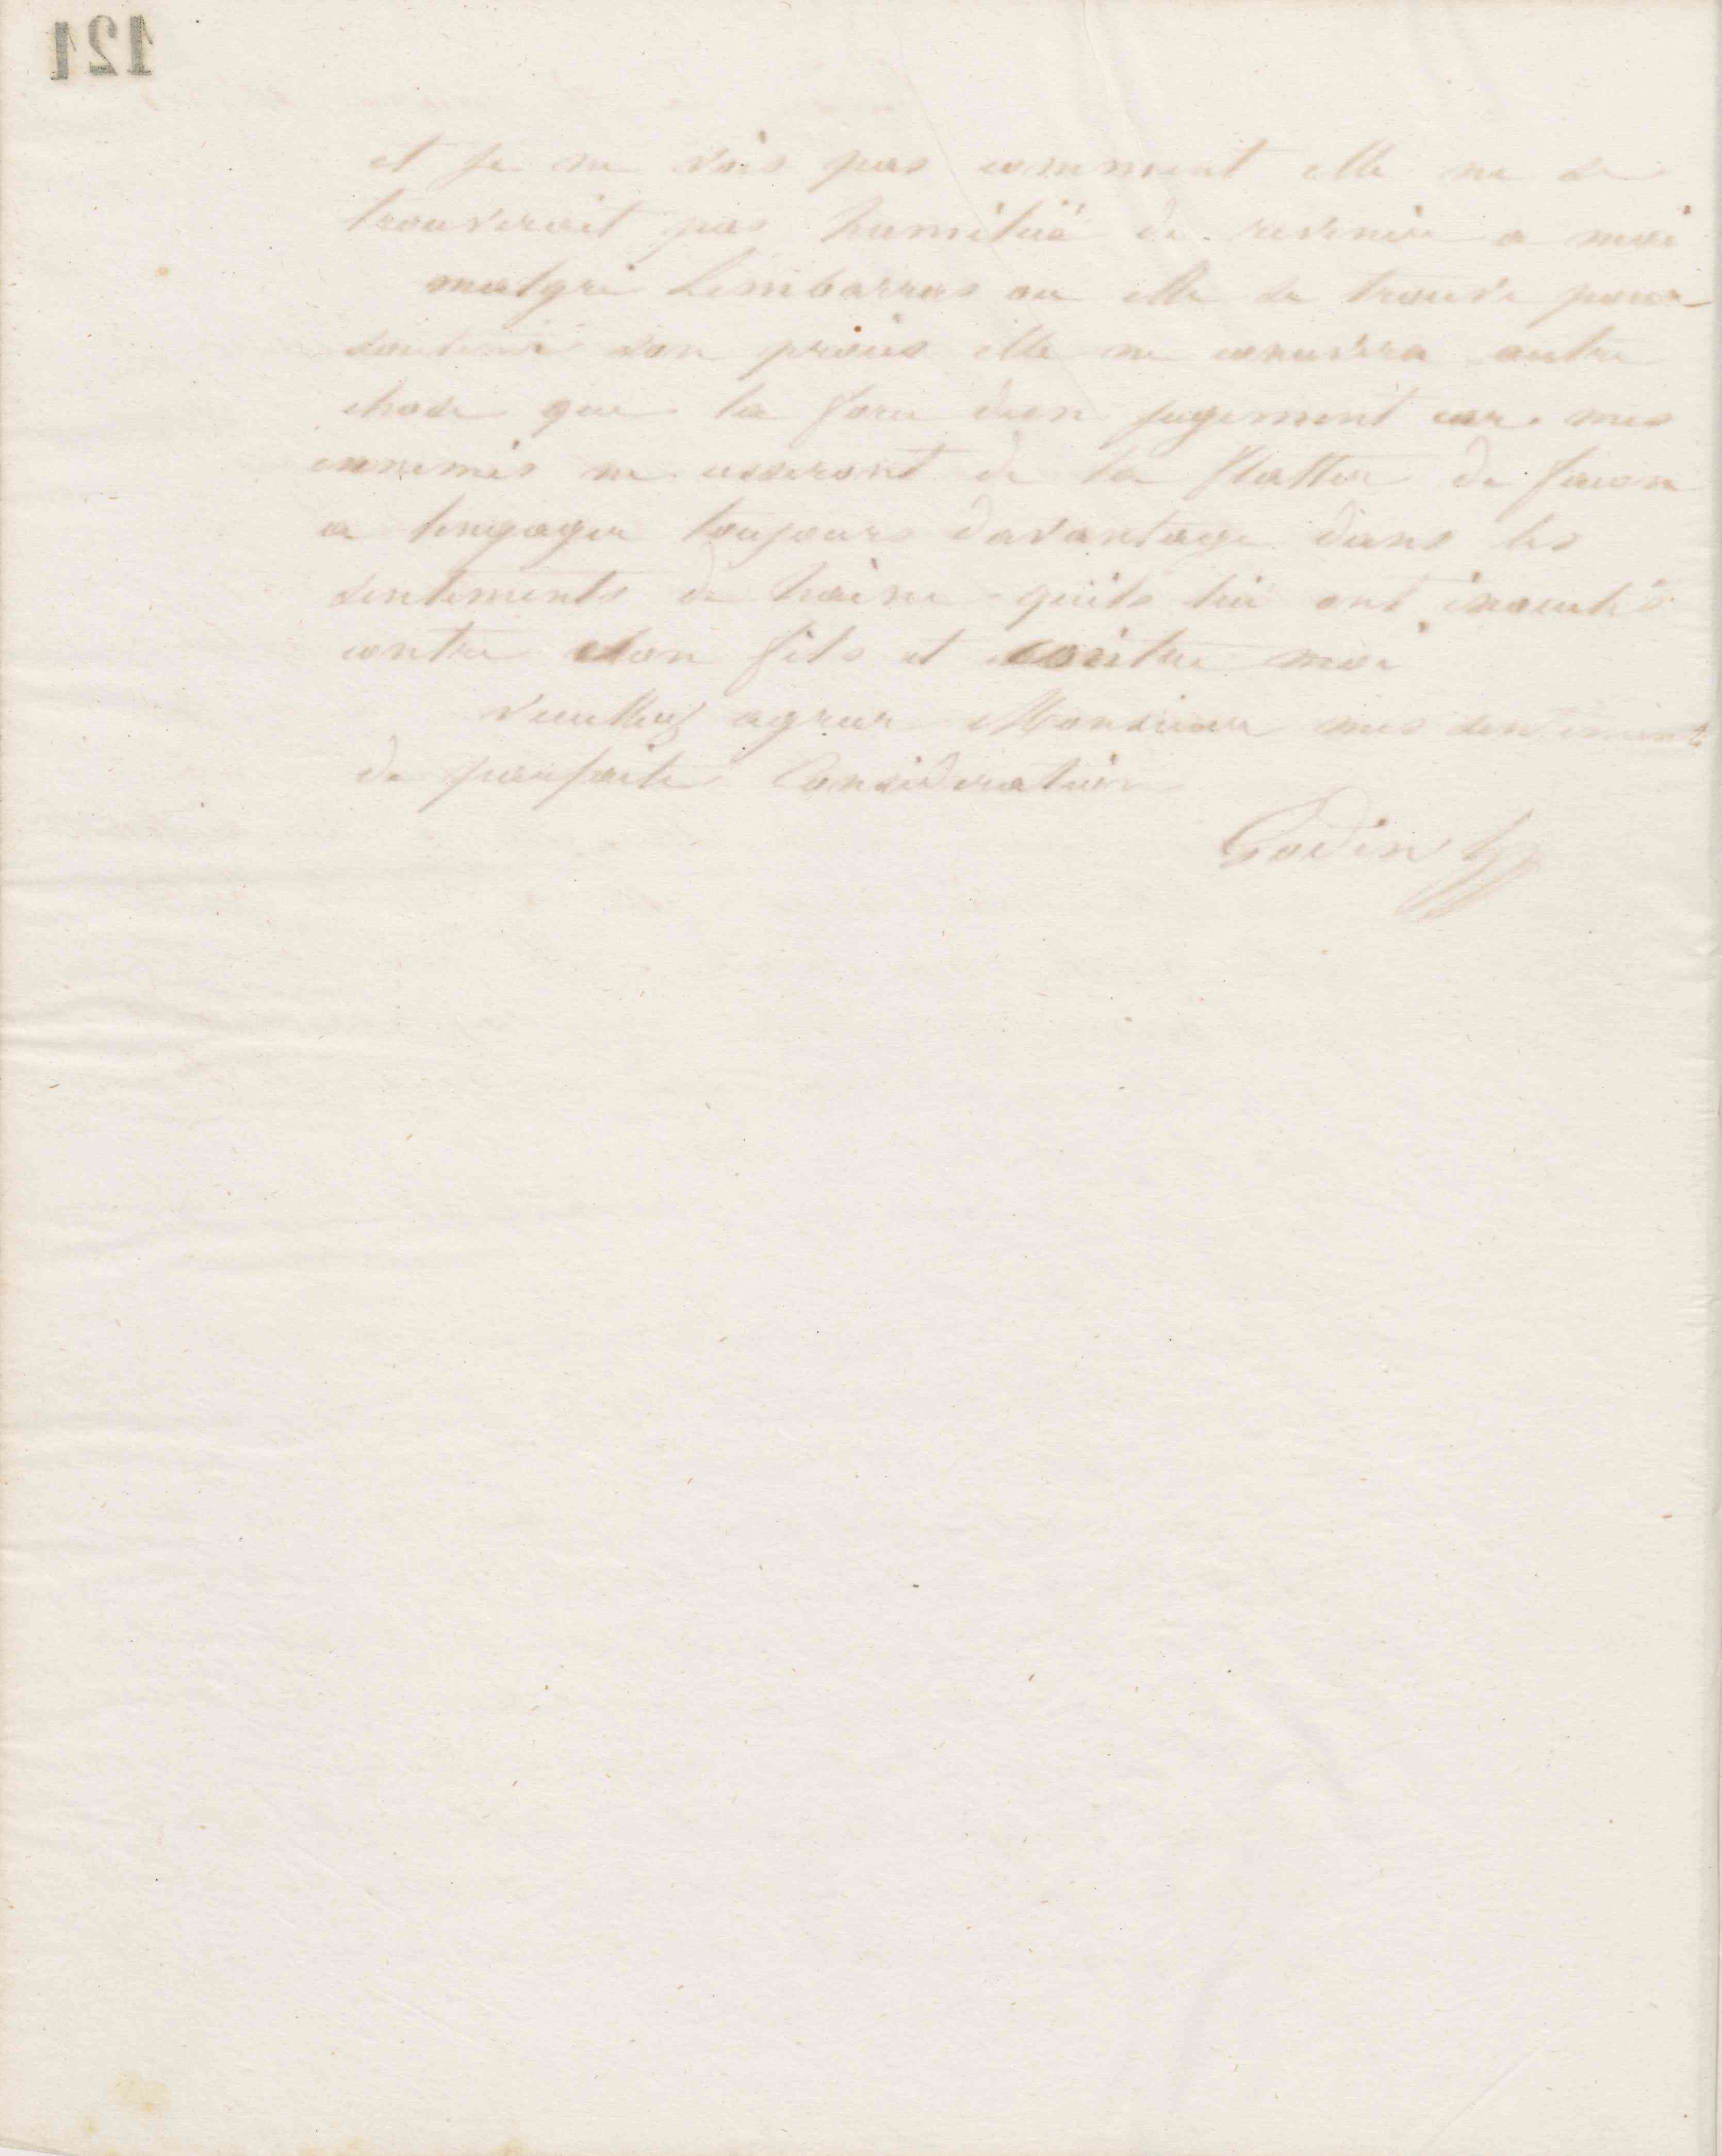 121
et je ne vois pas comment elle ne se
trouverait pas humiliée de revenir a moi
malgré Lembarras ou elle se trouve pour
soutenir son procès elle ne conuvra autre
chose que la force dun jugement car mes
ennemis ne cesseront de la flatter de facon
a lengager toujours davantage dans les
sentiments de haine quils lui ont inculés
contre son fils et contre moi
veuillez agreer Monsieur mes sentiments
de parfaite Consideration
Godin